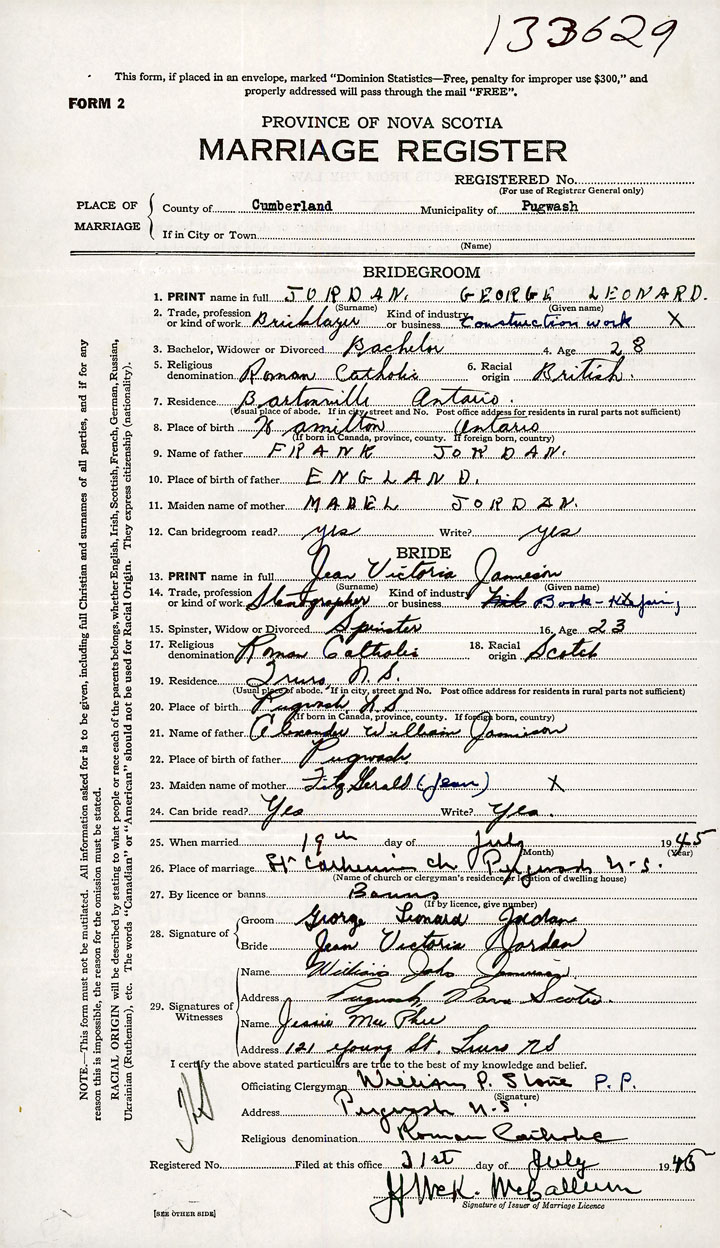 133629
This form, if placed in an envelope, marked "Dominion Statistics—Free, penalty for improper use $300," and
properly addressed will pass through the mail "FREE".
FORM 2
PROVINCE OF NOVA SCOTIA
MARRIAGE REGISTER
REGISTERED No.
(For use of Registrar General only)
PLACE OF MARRIAGE
County of Cumberland Municipality of Pugwash
If in City or Town
(Name)
BRIDEGROOM
1. PRINT name in full JORDAN. GEORGE LEONARD.
(Surname) (Given name)
2. Trade, profession or kind of work Bricklayer Kind of industry or business Construction work X
3. Bachelor, Widower or Divorced Bachelor 4. Age 28
5. Religious denomination Roman Catholic 6. Racial origin British.
7. Residence Bartonville Ontario.
(Usual place of abode. If in city, street and No. Post office address for residents in rural parts not sufficient)
8. Place of birth Hamilton Ontario
(If born in Canada, province, county. If foreign born, country)
9. Name of father FRANK JORDAN.
10. Place of birth of father ENGLAND.
11. Maiden name of mother MABEL JORDAN.
12. Can bridegroom read? yes Write? yes
BRIDE
13. PRINT name in full Jean Victoria Jamieson
(Surname) (Given name)
14. Trade, profession or kind of work Stenographer Kind of industry or business Book-
15. Spinster, Widow or Divorced Spinster 16. Age 23
17. Religious denomination Roman Catholic 18. Racial origin Scotch
19. Residence Truro, N.S.
(Usual place of abode. If in city, street and No. Post office address for residents in rural parts not sufficient)
20. Place of birth Pugwash N.S.
(If born in Canada, province, county. If foreign born, country)
21. Name of father Alexander William Jamieson
22. Place of birth of father Pugwash
23. Maiden name of mother FitzGerald (Jean) X
24. Can bride read? Yes Write? Yes.
25. When married 19th day of July 1945
(Month) (Year)
26. Place of marriage St Catherines ch Pugwash N.S.
(Name of church or clergyman's residence or location of dwelling house)
27. By licence or banns Banns
(If by licence, give number)
28. Signature of
Groom George Leonard Jordan
Bride Jean Victoria Jorden
29. Signatures of Witnesses
Name William John Jamieson
Address Pugwash, Nova Scotia.
Name Jessie MacPhee
Address 121 Young St. Truro NS
I certify the above stated particulars are true to the best of my knowledge and belief.
Officiating Clergyman William P. Stone P.P.
(Signature)
Address Pugwash N.S.
Religious denomination Roman Catholic
Registered No. Filed at this office 31st day of July 1945
J McK. McCallum
Signature of Issuer of Marriage Licence
[SEE OTHER SIDE]
NOTE.—This form must not be mutilated. All information asked for is to be given, including full Christian and surnames of all parties, and if for any
reason this is impossible, the reason for the omission must be stated.
RACIAL ORIGIN will be described by stating to what people or race each of the parents belongs, whether English, Irish, Scottish, French, German, Russian,
Ukrainian (Ruthenian), etc. The words "Canadian" or "American" should not be used for Racial Origin. They express citizenship (nationality).